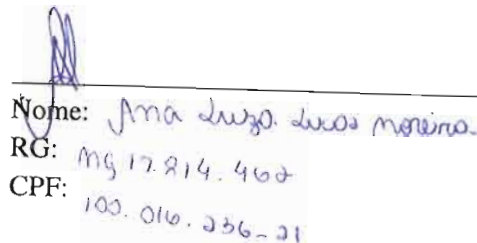 Nome: Ana Luza Lucas Moreira
RG: MG 17.814.462
CPF:
100.016.236-21